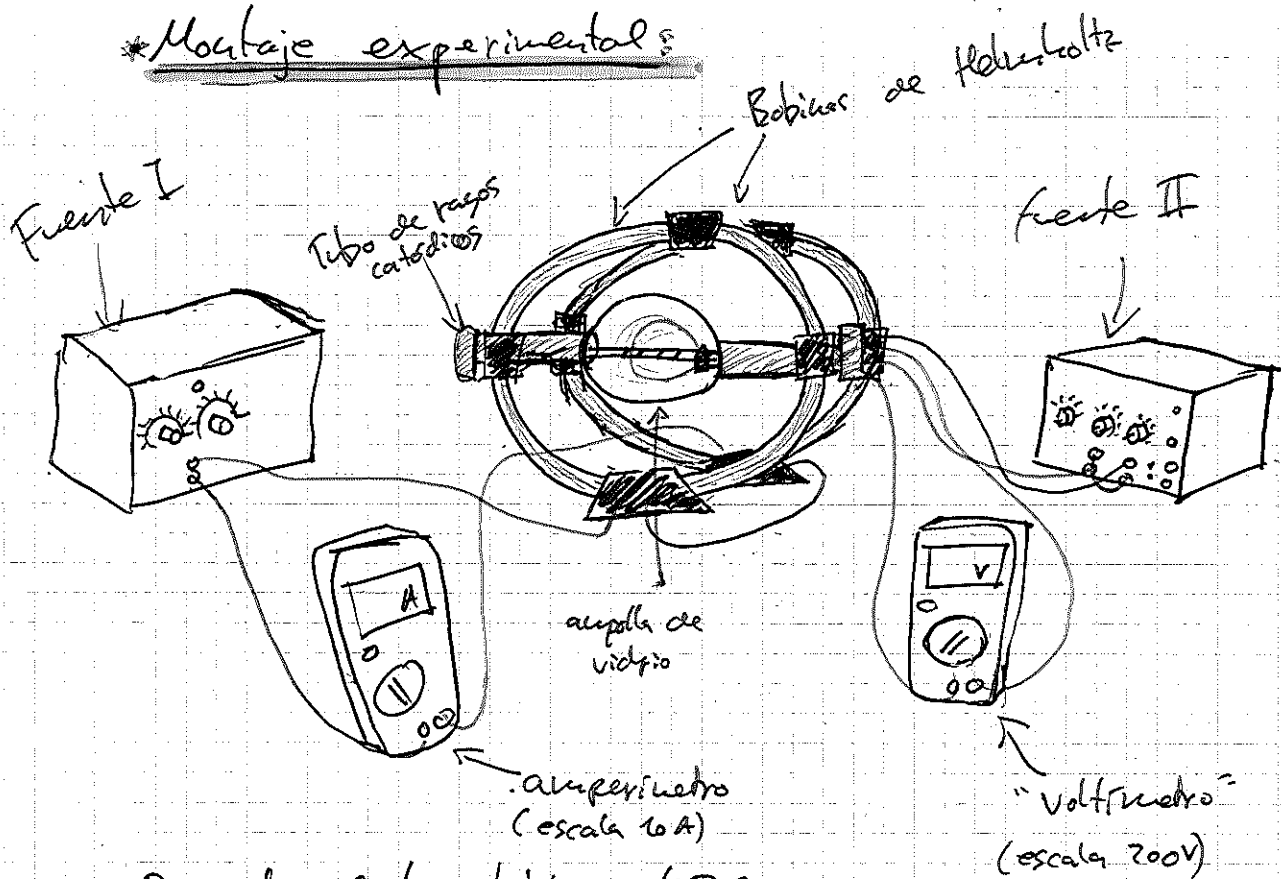 *Montaje experimental:
Bobinas de Helmholtz
Fuente I
Tubo de rayos
catódicos
fuente II
A
V
ampolla de
vidrio
amperímetro
(escala 10 A)
"voltímetro"
(escala 200V)